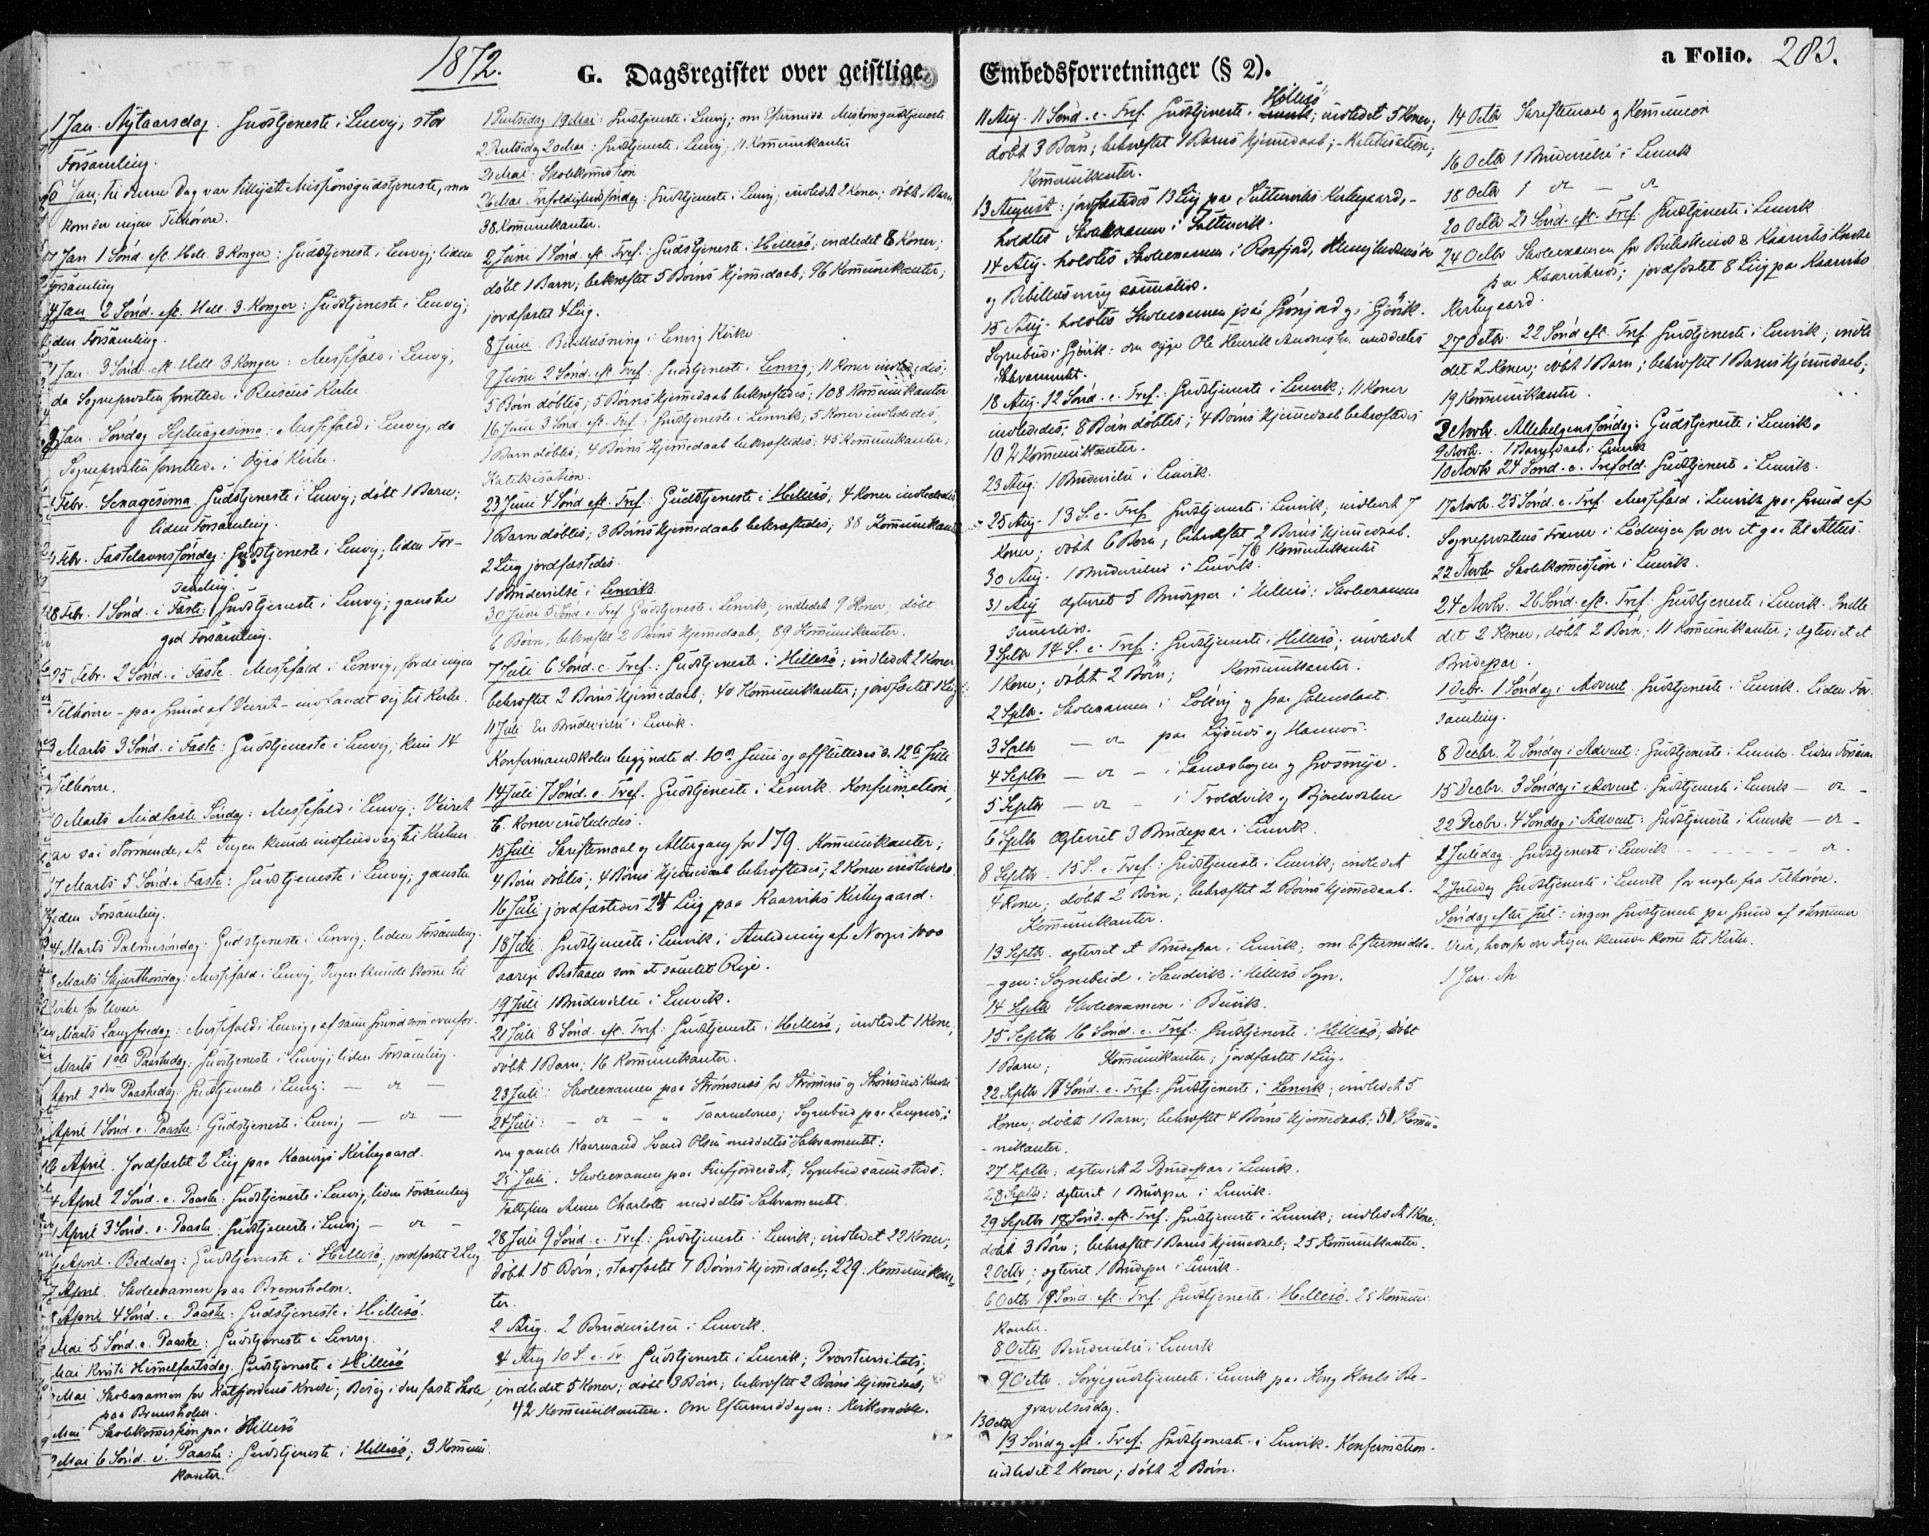 1872.
G. Dagsregister over geistlige
1 Jan. Nytaarsdag. Gudstjeneste i Lenvig; stor
Forsamling.
6 Jan, til denne Dag var tillyst Missionsgudstjeneste, men
kom der ingen Tilhörere.
7 Jan 1 Sönd. eft. Hell. 3 Konger: Gudstjenest i Lenvig; liden
Forsamling
14 Jan 2 Sönd. eft. Hell. 3. Konger: Gudstjeneste i Lenvig;
liden Forsamling.
21 Jan. 3 Sönd. eft. Hell 3 Konger: Messefald i Lenvig,
da Sogneprösten forrettede i Kirke.
28 Jan. Söndag Septuagesima: Messefald i Lenvig, da
Sogneprösten forrettede i Kirke.
4 Febr. Sexagesima Gudstjeneste i Lenvig; döbt 1 Barn;
liden Forsamling.
11 Febr. Fastelavnssöndag: Gudstjeneste i Lenvig; liden For-
samling.
18 Febr. 1 Sönd. i Faste: Gudstjeneste i Lenvig; ganske
god Forsamling.
25 Febr. 2 Sönd. i Faste. Messefald i Lenvig, fordi ingen
Tilhörere - paa Grund af Veiret - indfandt sig til Kirke.
3 Marts 3 Sönd. i Faste: Gudstjeneste i Lenvig; kun 14
Tilhörere.
10 Marts Midfaste Söndag: Messefald i Lenvig; Veiret
var saa stormende, at Ingen kunde indfinde sig til Kirken.
17 Marts 5 Sönd. i Faste: Gudstjeneste i Lenvig; ganske
liden Forsamling.
24 Marts Palmesöndag: Gudstjeneste i Lenvig; liden Forsamling.
28 Marts Skjærthorsdag: Messefald i Lenvig, Ingen kunde komme til
Kirke for Uveir
29 Marts Langfredag: Messefald i Lenvig, af samme Grund som ovenfor.
31 Marts 1ste Paaskedag: Gudstjeneste i Lenvig; liden Forsamling.
1 April 2den Paaskedag: Gudstjeneste i Lenvig: — do —
7 April 1 Sönd. e. Paaske: Gudstjeneste i Lenvig — do —
12 April. Jordfæstet 2 Liig paa Kaarvigs Kirkegaard.
14 April 2 Sönd. e. Paaske: Gudstjeneste i Lenvig, liden Forsamling
21 April 3 Sönd. e. Paaske: Gudstjeneste i Lenvig — do —
26 April. Bededag: Gudstjeneste i Hillesö, jordfæstet 2 Liig
27 April. Skoleexamen paa Bremsholm.
28 April 4 Sönd. e. Paaske: Gudstjeneste i Hillesö.
5 Mai 5 Sönd. e. Paaske: Gudstjeneste i Lenvig.
9 Mai Kristi Himmelfartsdag. Gudstjeneste i Hillesö
Mai Skoleexamen for Katfjordens Kreds; Besög i den faste Skole
paa Bremsholm.
Mai Skolekommission paa Hillesö
12 Mai 6 Sönd. e. Paaske: Gudstjeneste i Hillesö; 3 Kommuni-
kanter.
1 Pintsedag 19 Mai: Gudstjeneste i Lenvig; om Eftermidd. Missionsgudstjeneste
2 Pintsedag 20 Mai: Gudstjeneste i Lenvig; 11 Kommunikanter
21 Mai Skolekommission
26 Mai Trefoldighedssöndag: Gudstjeneste i Lenvig; indledet 2 Koner; döbt 1 Barn
38 Kommunikanter.
2 Juni 1 Sönd. eft. Tref: Gudstjeneste i Hillesö, indledet 8 Koner;
döbt 1 Barn; bekræftet 5 Börns Hjemmedaab; 96 Kommunikanter;
jordfæstet 4 Liig.
8 Juni. Bibellæsning i Lenvig Kirke
9 Juni 2 Sönd. eft. Tref: Gudstjeneste i Lenvig; 11 Koner indledes;
5 Börn döbtes; 5 Börns Hjemmedaab bekræftedes; 108 Kommunikanter
16 Juni 3 Sönd. eft. Tref: Gudstjeneste i Lenvik; 5 Koner indlededes,
1 Barn döbtes; 4 Börns Hjemmedaab bekræftedes; 45 Kommunikanter;
Katekisation.
23 Juni 4 Sönd eft. Tref: Gudstjeneste i Hillesö; 4 Koner indlededes
1 Barn döbtes; 3 Börns Hjemmedaab bekræftedes; 88 Kommunikanter
2 Liig jordfæstedes.
1 Brudevielse i Lenvik.
30 Juni 5 Sönd. e. Tref Gudstjeneste i Lenvik, indledet 9 Koner, döbt
6 Börn, bekræftet 2 Börns Hjemmedaab, 89 Kommunikanter.
7 Juli 6 Sönd. e. Tref.: Gudstjeneste i Hillesö; indledet 2 Koner,
bekræftet 2 Börns Hjemmedaab; 40 Kommunikanter; jordfæstet 1 Liig
11 Juli En Brudevielse i Lenvik.
Konfirmandskolen begyndte d. 10de Juni og afsluttedes d. 12te Juli
14 Juli 7 Sönd. e. Tref. Gudstjeneste i Lenvik Konfirmation,
6 Koner indlededes.
15 Juli Skriftemaal og Altergang for 179. Kommunikanter;
4 Börn döbtes; 4 Börns Hjemmedaab bekræftedes; 2 Koner indlededes.
16 Juli jordfæstedes 24 Liig paa Kaarviks Kirkegaard.
18 Juli Gudstjeneste i Lenvik i Anledning af Norges 1000
aarige Bestaaen som et samlet Rige.
19 Juli 1 Brudevielse i Lenvik.
21 Juli 8 Sönd. eft. Tref: Gudstjeneste i Hillesö, indledet 1 Kone,
döbt 1 Barn; 16 Kommunikanter.
23 Juli: Skoleexamen paa Strömsnæs for Strömens og Strömsnæs Kredse
24 Juli: — do — " ; Sognebud paa Langnæs;
den gamle Kaarmand Svend Olsen meddeltes Sakramentet:
25 Juli. Skoleexamen paa Finfjordeidet; Sognebud sammesteds:
Anne Charlotte meddeltes Sakramentet.
28 Juli 9 Sönd. e. Tref: Gudstjeneste i Lenvik; indledet 22 Koner;
döbt 15 Börn; stadfæstet 7 Börns Hjemmedaab; 229. Kommunikan-
ter.
2 Aug. 2 Brudevielser i Lenvik.
4 Aug 10 S. e. Tr. Gudstjeneste i Lenvik; Provstevisitats;
indledet 5 Koner; döbt 3 Börn; bekræftet 2 Börns Hjemmedaab;
42 Kommunikanter. Om Eftermiddagen: Kirkemöde.
Embedsforretninger (§ 2).
a Folio. 283.
11 Aug. 11 Sönd. e. Tref. Gudstjeneste i Hillesö; indledet 5 Koner;
döbt 3 Börn; bekræftet 1 Barns Hjemmedaab; - Katekisation;
Kommunikanter.
13 August: jordfæstedes 13 Liig paa Kirkegaard, -
holdtes Skoleexamen i
14 Aug. holdtes Skoleexamen i Rossfjord,
og Bibellæsning sammesteds.
15 Aug. holdtes Skoleexamen paa Grönjord og i Gjövik.
Sognebud i Gjövik: den syge Ole Henrik meddeltes
Sakramentet.
18 Aug. 12 Sönd. e. Tref.: Gudstjeneste i Lenvik; 11 Koner
indlededes; 8 Börn döbtes; 4 Börns Hjemmedaab bekræftedes
102 Kommunikanter.
23 Aug. 1 Brudevielse i Lenvik.
25 Aug. 13 S. e. Tref Gudstjeneste i Lenvik; indledet 7
Koner; döbt 6 Börn; bekræftet 2 Börns Hjemmedaab.
Kommunikanter
30 Aug. 1 Brudevielse i Lenvik.
31 Aug ægteviet 5 Brudepar i Hillesö; Skoleexamen
sammesteds.
1 Septb 14 S. e. Tref: Gudstjeneste i Hillesö; indledet
1 Kone; döbt 2 Börn; Kommunikanter.
2 Septb. Skoleexamen i Lökvig og paa
3 Septb — do — paa Lysnæs og
4 Septbr — do — i Landsbogen og
5 Septbr — do — i Troldvik og
6 Septb Ægteviet 3 Brudepar i Lenvik.
8 Septbr. 15 S. e. Tref: Gudstjeneste i Lenvik; indledet
4 Koner; döbt 2 Börn; bekræftet 2 Börns Hjemmedaab.
Kommunikanter.
13 Septb. ægteviet et Brudepar i Lenvik; om Eftermidda-
gen: Sognebud i Sandvik i Hillesö Sogn.
14 Septbr Skoleexamen i
15 Septbr 16 Sönd. e. Tref: Gudstjeneste i Hillesö; döbt
1 Barn; Kommunikanter; jordfæstet 1 Liig.
22 Septbr 17 Sönd. e. Tref: Gudstjeneste i Lenvik; indledet 5
Koner, döbt 1 Barn; bekræftet 4 Börns Hjemmedaab; 51 Kommu-
nikanter.
27 Septb: ægteviet 2 Brudepar i Lenvik.
28 Septb: ægteviet 1 Brudepar i Lenvik.
29 Septbr 18 Sönd. eft. Tref: Gudstjeneste i Lenvik; indledet 1 Kone;
döbt 3 Börn; bekræftet 1 Barns Hjemmedaab; 25 Kommunikanter.
2 Octbr; ægteviet 1 Brudepar i Lenvik.
6 Octbr 19 Sönd. eft. Tref. Gudstjeneste i Hillesö. 25 Kommuni-
kanter.
8 Octbr Brudevielse i Lenvik
9 Octb. Sörgegudstjeneste i Lenvik paa Kong Karls Be-
gravelsesdag.
13 Octbr
Söndag eft. Tref. Gudstjeneste i Lenvik. Konfirmation.
indledet 2 Koner; döbt 2 Börn.
14 Octbr Skriftemaal og Kommunion
16 Octbr 1 Brudevielse i Lenvik
18 Octbr 1 do — do
20 Octbr 21 Sönd. eft. Tref. Gudstjeneste i Lenvik
24 Octbr Skoleexamen for & Kaarviks Kredse
paa Kaarviknæs; jordfæstet 8 Liig paa Kaarviks
Kirkegaard.
27 Octbr. 22 Sönd eft. Tref Gudstjeneste i Lenvik; indle-
det 2 Koner; döbt 1 Barn; bekræftet 1 Barns Hjemmedaab;
19 Kommunikanter.
3 Novbr. Allehelgenssöndag: Gudstjeneste i Lenvik.
9 Novbr. 1 i Lenvik
10 Novbr 24 Sönd. e. Trefold. Gudstjeneste i Lenvik.
17 Novbr. 25 Sönd. e. Tref. Messefald i Lenvik paa Grund af
Sogneprestens Fravær i Lödingen for der at gaa til Alters.
22 Novbr Skolekommission i Lenvik.
24 Novbr. 26 Sönd. eft. Tref: Gudstjeneste i Lenvik. Indle-
det 2 Koner, döbt 2 Börn; 11 Kommunikanter; ægteviet et
Brudepar.
1 Decbr. 1 Söndag i Advent. Gudstjeneste i Lenvik. Liden For-
samling.
8 Decbr. 2 Söndag i Advent: Gudstjeneste i Lenvik. Liden Forsam.
15 Decbr. 3 Söndag i Advent: Gudstjeneste i Lenvik — do -
22 Decbr. 4 Söndag i Advent: Gudstjeneste i Lenvik — do -
1 Juledag. Gudstjeneste i Lenvik - - - - - do.
2 Juledag Gudstjeneste i Lenvik for nogle faa Tilhörere.
Söndag efter Jul: ingen Gudstjeneste paa Grund af slemme
Veir, hvorfor der Ingen kunde komme til Kirke.
1 Jan.